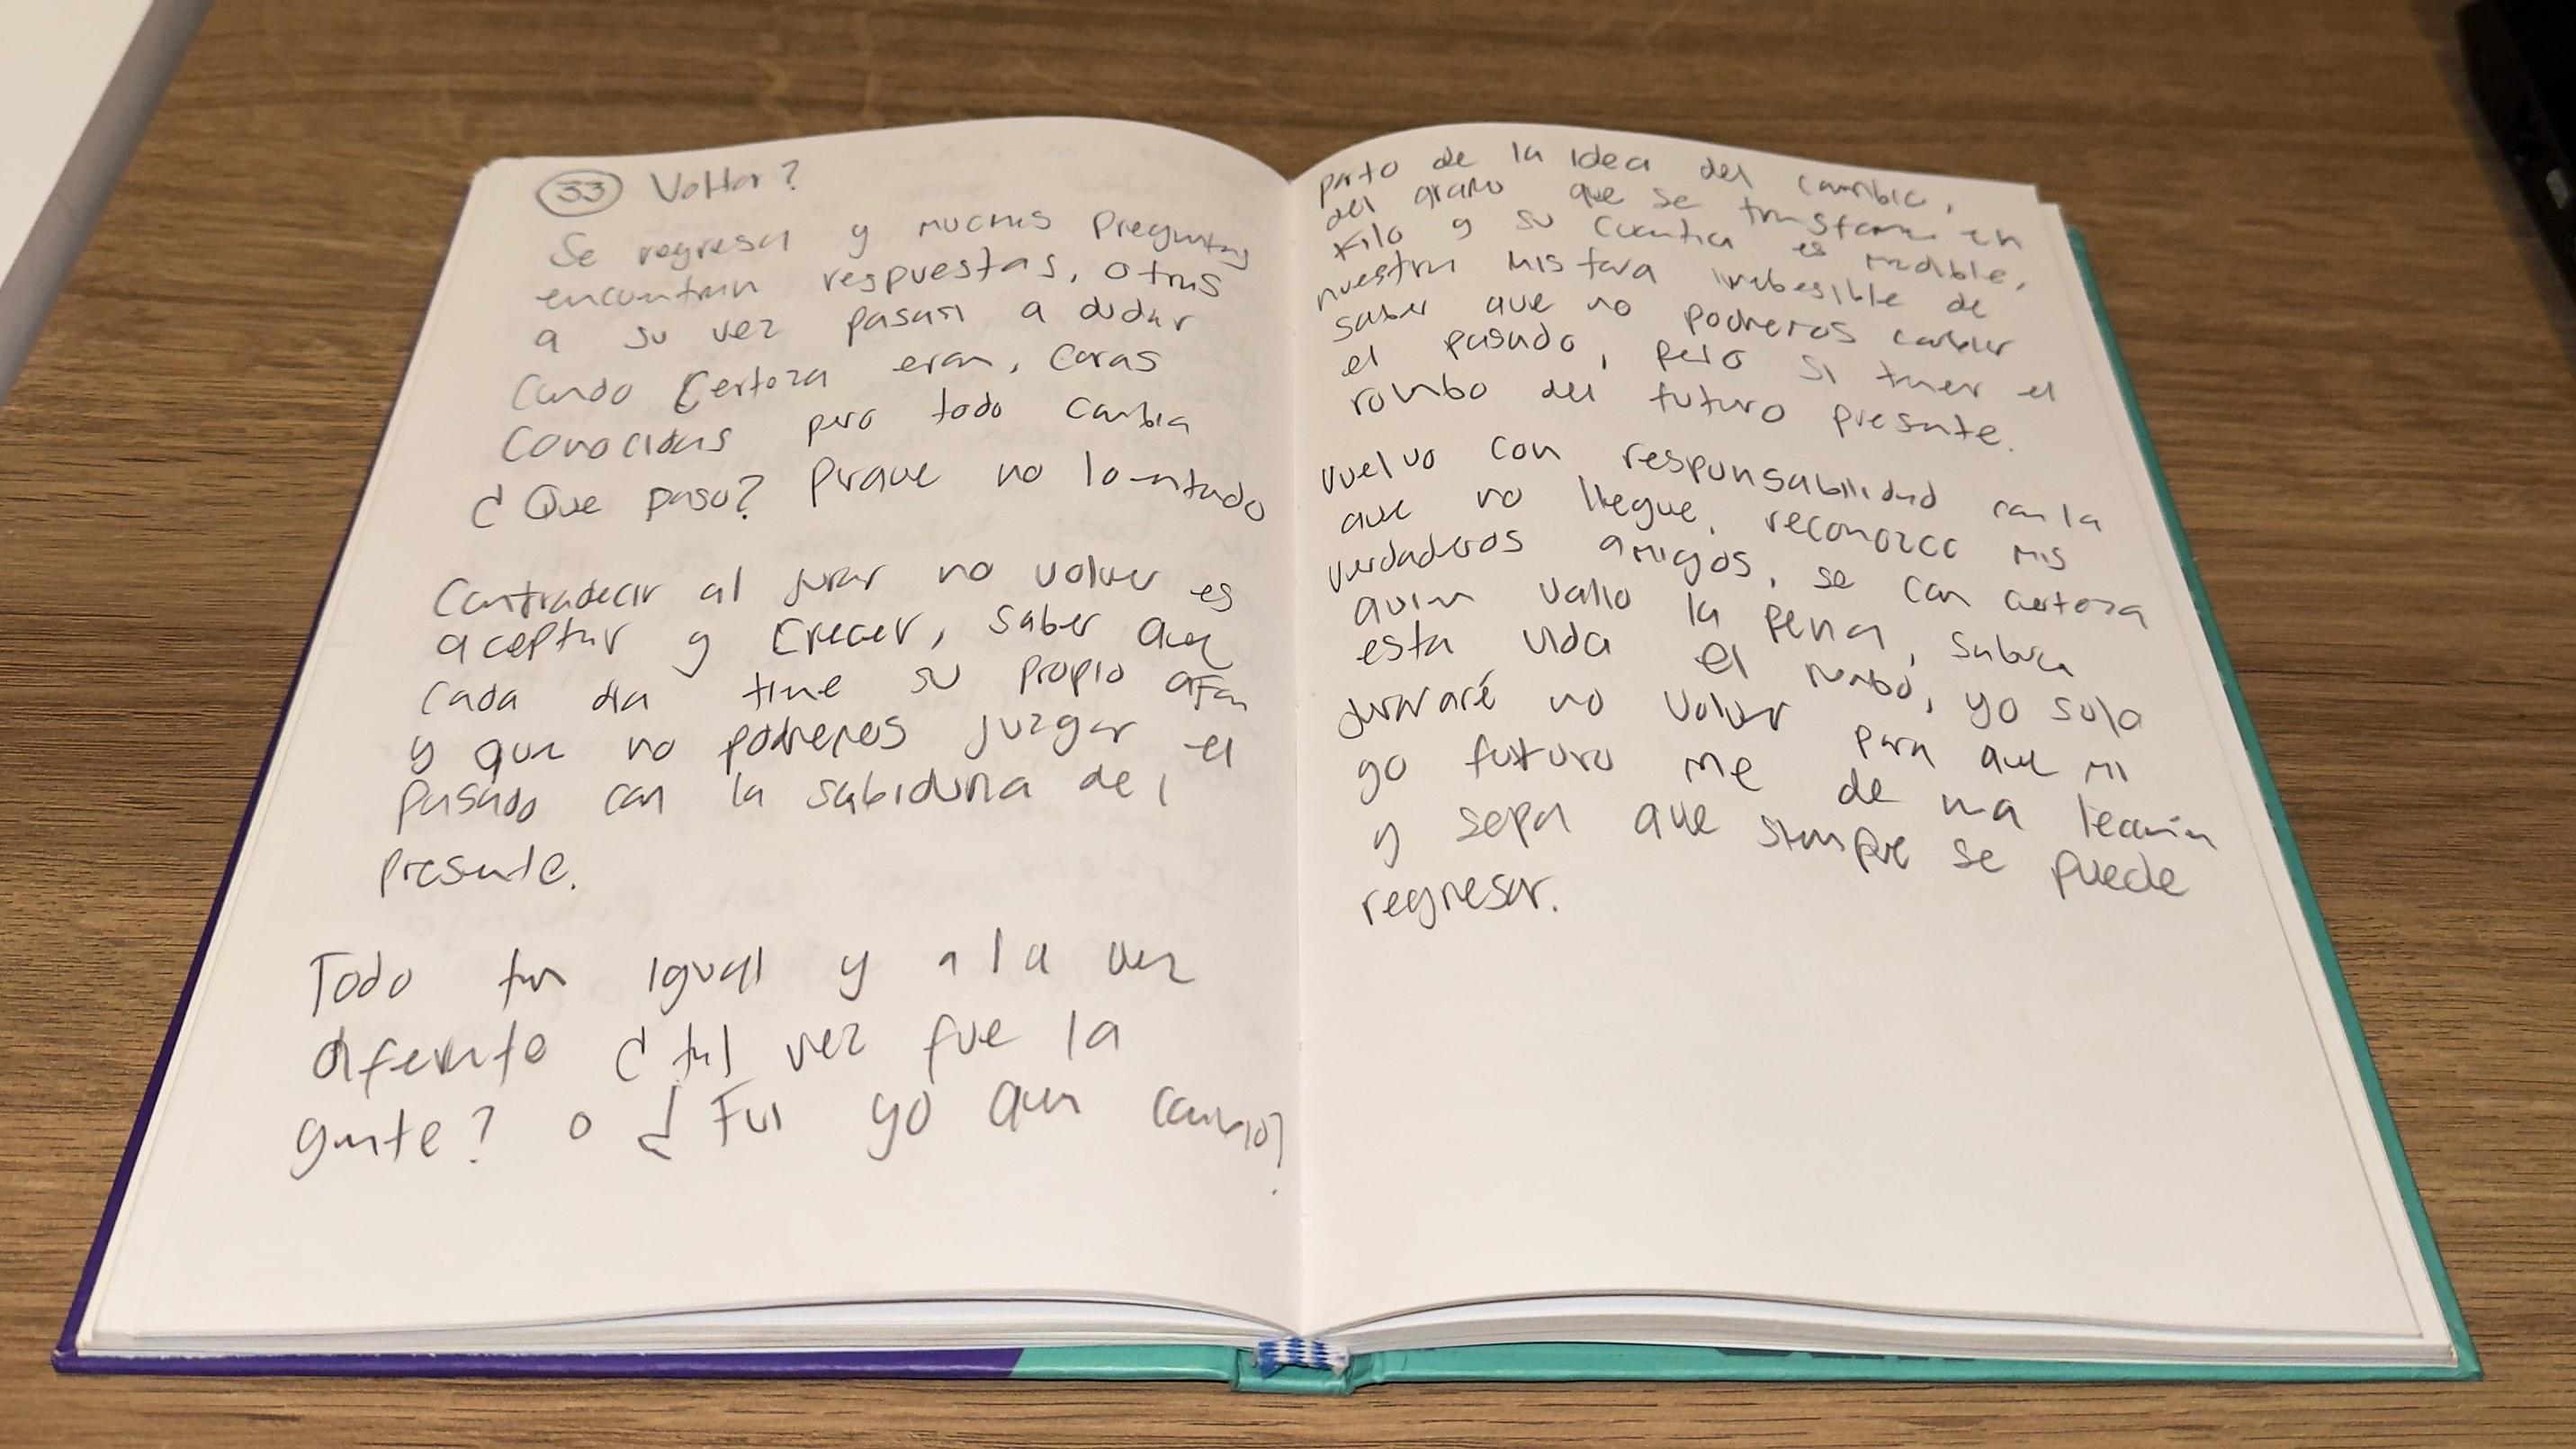 33 Voltar?
Se regresa y muchas preguntas
encuentran respuestas, otras
a su vez pasan a dudar
Cuando Certeza eran, Caras
Conocidas pero todo cambia
¿Que paso? Porque no lo entiendo
Contradecir al jurar no volver es
aceptar y Crecer, saber que
Cada dia tiene su propio afan
y que no podremos juzgar el
pasado con la sabiduria del
presente.
Todo fue igual y a la vez
diferente ¿tal vez fue la
gente? o ¿Fui yo quien cambio?
parto de la idea del cambio,
del gramo que se transforma en
Kilo y su cuantia es medible,
nuestra historia de
saber que no podremos cambiar
el pasado, pero si traer el
rombo del futuro presente.
vuelvo con responsabilidad con la
que no llegue, reconozco mis
verdaderos amigos, se con certeza
quien valio la pena, sabra
esta vida el rumbo, yo solo
juraré no volver para que mi
yo futuro me de una leccion
y sepa que siempre se puede
regresar.